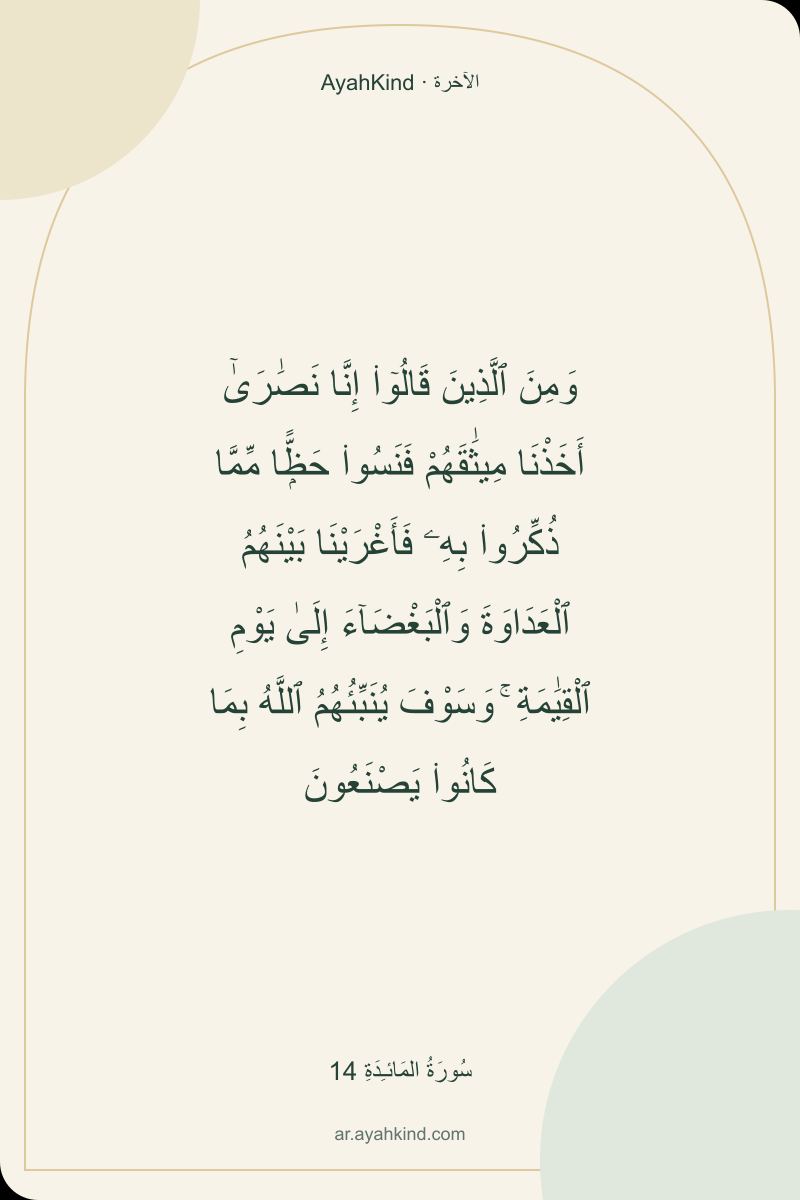 AyahKind · الآخرة
وَمِنَ ٱلَّذِينَ قَالُوٓا۟ إِنَّا نَصَـٰرَىٰٓ
أَخَذْنَا مِيثَـٰقَهُمْ فَنَسُوا۟ حَظًّۭا مِّمَّا
ذُكِّرُوا۟ بِهِۦ فَأَغْرَيْنَا بَيْنَهُمُ
ٱلْعَدَاوَةَ وَٱلْبَغْضَآءَ إِلَىٰ يَوْمِ
ٱلْقِيَـٰمَةِ ۚ وَسَوْفَ يُنَبِّئُهُمُ ٱللَّهُ بِمَا
كَانُوا۟ يَصْنَعُونَ
سُورَةُ المَائـِدَةِ 14
ar.ayahkind.com